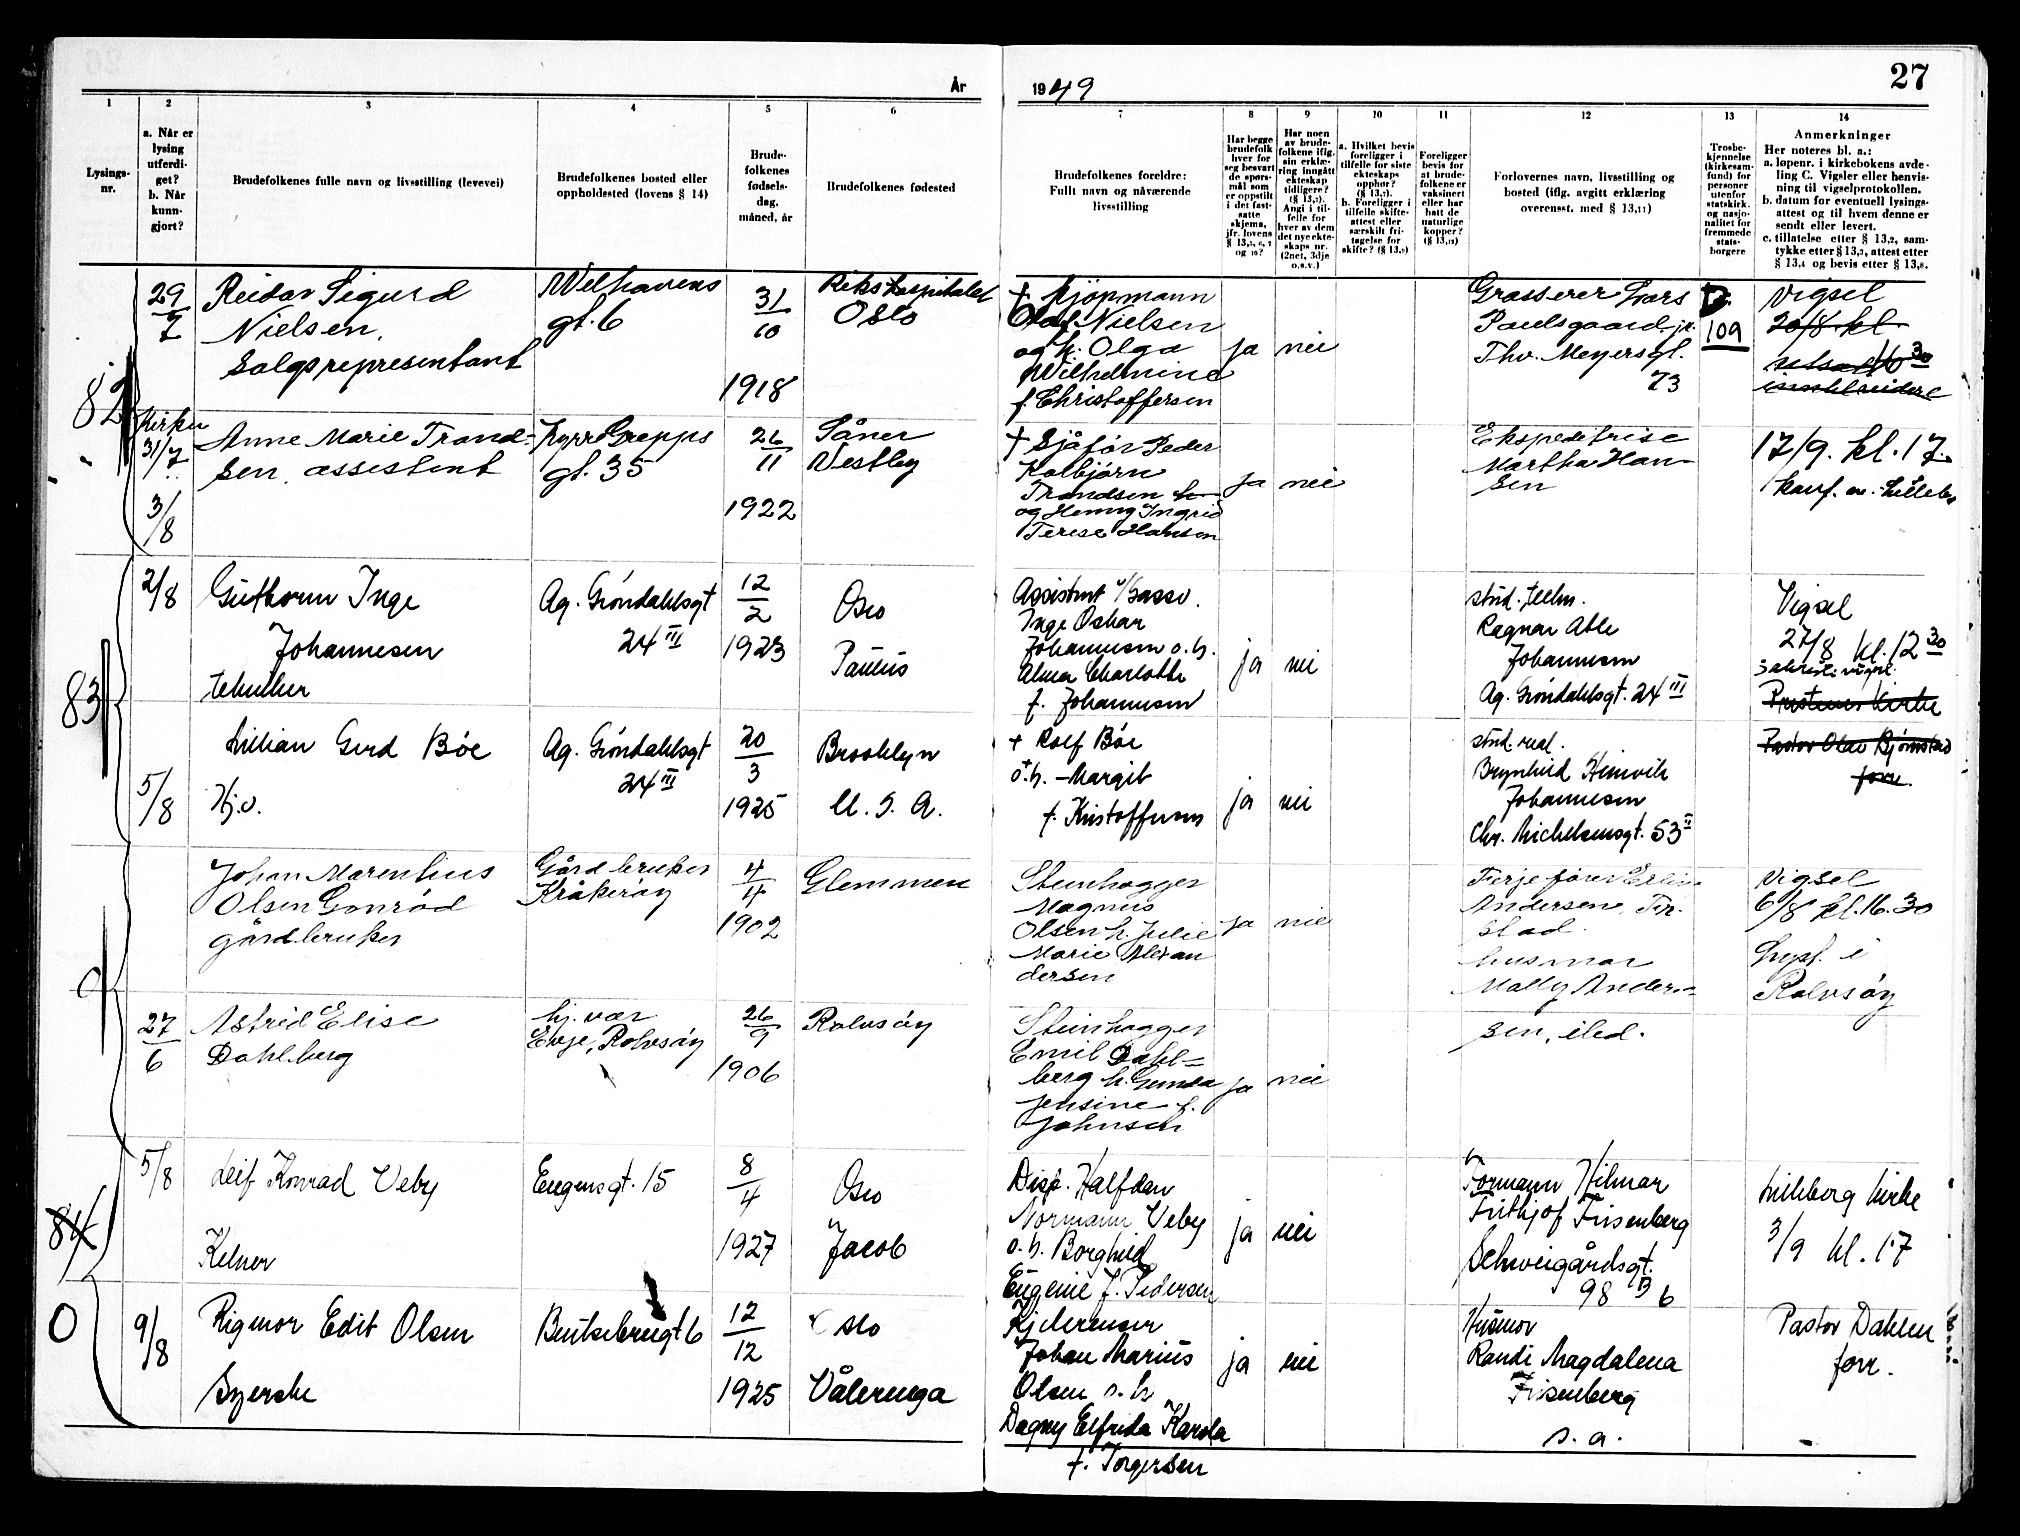 År
1949
27
1
2
3
4
5
6
7
8
9
10
11
12
13
14
Lysings-
nr.
a. Når er
lysing
utferdi-
get?
b. Når
kunn-
gjort?
Brudefolkenes fulle navn og livsstilling (levevei)
Brudefolkenes bosted eller
oppholdssted (lovens § 14)
Brude-
folkenes
fødsels-
dag,
måned, år
Brudefolkenes fødested
Brudefolkenes foreldre:
Fullt navn og nåværende
livsstilling
Har begge
brudefolk
hver for
seg besvart
de spørs-
mål som
er oppstilt
i det fast-
satte
skjema,
jfr. lovens
Har noen
av brude-
folkene iflg.
sin erklæ-
ring inngått
ekteskap
tidligere?
Angi i til-
felle for
hver av dem
det nye ekte-
skaps nr.
(2net, 3dje
o.s.v.)
a. Hvilket bevis
foreligger i
tilfelle for siste
ekteskaps
opphør?
b. Foreligger i
tilfelle skifte-
attest eller
særskilt fri-
tagelse for
skifte?
Foreligger
bevis for
at brude-
folkene er
vaksinert
eller har
hatt de
naturlige
kopper?
Forlovernes navn, livsstilling og
bosted (iflg. avgitt erklæring
overensst. med § 13,11)
Trosbe-
kjennelse
(kirkesam-
fund) for
personer
utenfor
statskirk.
og nasjo-
nalitet for
fremmede
stats-
borgere
Anmerkninger
Her noteres bl. a.:
a. løpenr. i kirkebokens avde-
ling C. Vigsler eller henvis-
ning til vigselprotokollen.
b. datum for eventuell lysings-
attest og til hvem denne er
sendt eller levert.
c. tillatelse etter § 13,2, sam-
tykke etter § 13,3, attest etter
§ 13,4 og bevis etter § 13,8.
82
29/7
Reidar Sigurd
Nielsen,
Salgsrepresentant
Welhavens
gt. 6
31/10
1918
Rikshospitalet
Oslo
+ Kjøpmann
Olaf Nielsen
og h. Olga
Wilhelmine
f. Christoffersen
ja
nei
Grosserer Lars
Paulsgaard jr.
Thv. Meyersgt.
73
109
Vigsel
20/8 kl.
31/7
3/8
Anne Marie Trand-
sen, assistent
gt. 35
26/11
1922
Såner
Vestby
+ Sjåfør Peder
Kolbjørn
Trandsen
og Henny Ingrid
Terese Hansen
ja
nei
Ekspeditrise
Martha Han-
sen
17/9. kl. 17.
83
2/8
Guthorm Inge
Johannesen
tekniker
Ag. Gröndahlsgt
24 III
12/2
1923
Oslo
Paulus
Assistent v/Gassv.
Inge Oskar
Johannesen o. h.
Alma Charlotte
f. Johannesen
ja
nei
stud. techn.
Ragnar Atle
Johannesen
Ag. Gröndahlsgt. 24 III
Vigsel
27/8 kl. 12 30
5/8
Lillian Gerd Böe
Hj.v.
Ag. Gröndahlsgt
24 III
20/3
1925
Brooklyn
U. S. A.
+ Rolf Böe
o. h. Margit
f. Kristoffersen
ja
nei
stud. real.
Brynhild Heinvik
Johannesen
Chr. Michelsensgt. 53 II
Pastor Olav Bjørnstad
forr.
0
Johan Marenhius
Olsen Gonrød
gårdbruker
Gårdbruker
Kråkerøy
4/4
1902
Glemmen
Steinhogger
Magnus
Olsen h. Julie
Marie Alexan
dersen
ja
nei
Andersen,
husmor
Molly Ander-
sen, ibid.
Vigsel
6/8 kl. 16.30
Lyst i
Rolvsøy
27/6
Astrid Elise
Dahlberg
hj. vær
Evje, Rolvsøy
26/9
1906
Rolvsøy
Steinhogger
Emil Dahl-
berg h. Gunda
Jensine f.
Johnsen
ja
nei
84
0
5/8
Leif Konrad Veby
Kelner
Eugensgt. 15
8/4
1927
Oslo
Jacob
Disp. Halfdan
Normann Veby
o. h. Borghild
Eugenie f. Pedersen
ja
nei
Formann Hilmar
Frithjof Frisenberg
Schweigårdsgt.
98 B 6
Lilleborg kirke
3/9 kl. 17
9/8
Rigmor Edit Olsen
Syerske
Botsebrugt 6
12/12
1925
Oslo
Vålerenga
Johan Marius
Olsen o. h
Dagny Elfrida Karola
f. Torgersen
ja
nei
Husmor
Randi Magdalena
Frisenberg
s. a.
Pastor Dahlen
forr.